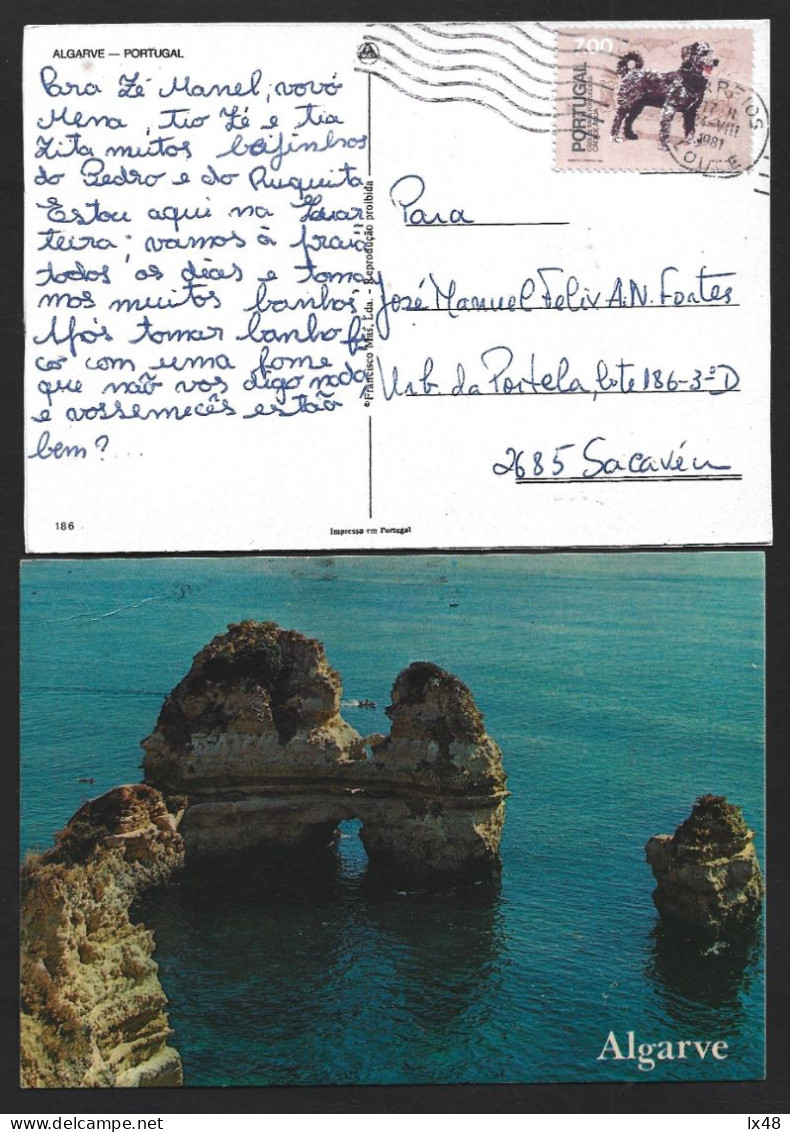 ALGARVE — PORTUGAL
Para Zé Manel, vovó
Mena, tio Zé e tia
Zita muitos beijinhos
do Pedro e do Ruquita
Estou aqui na Quar
teira; vamos à praia
todos os dias e toma
mos muitos banhos.
Após tomar banho fi
co com uma fome
que não vos digo nada,
e vossemecês estão
bem?...
186
©Francisco Más, Lda. - Reprodução proibida
Impresso em Portugal
7.00
PORTUGAL
1981
LOULE
Para
José Manuel Feliv A. N. Fontes
Urb. da Portela, lote 186-3ºD
2685 Sacavém
Algarve
lx48